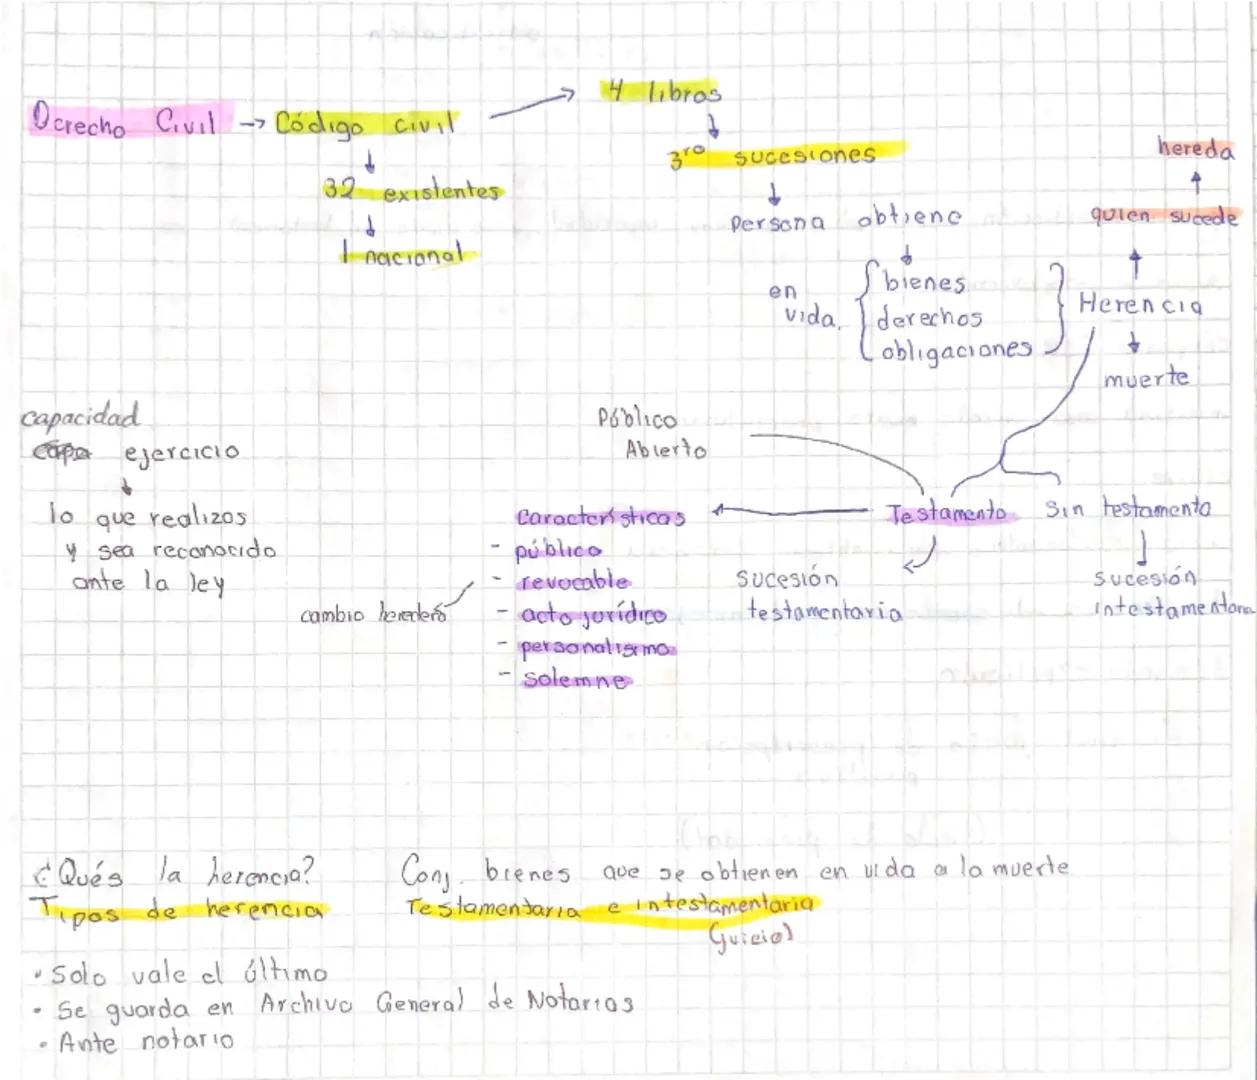 Derecho Civil → Código civil → 4 libros
↓
32 existentes
↓
1 nacional
↓
3ro sucesiones
↓
Persona obtiene
↓
en vida.
bienes
derechos
obligaciones
hereda
↑
quien sucede
↑
Herencia
↓
muerte
capacidad
ejercicio
↓
lo que realizas
y sea reconocido
ante la ley
Público
Abierto
Testamento
Sin testamento
Sucesión
testamentaria
Sucesión
intestamentaria
Características
- público
- revocable
- acto jurídico
- personalismo
- solemne
cambio heredero
¿Qués la herencia? Conj. bienes que se obtienen en vida a la muerte
Tipos de herencia Testamentaria e intestamentaria
(juicio)
• Solo vale el último
• Se guarda en Archivo General de Notarias
• Ante notario